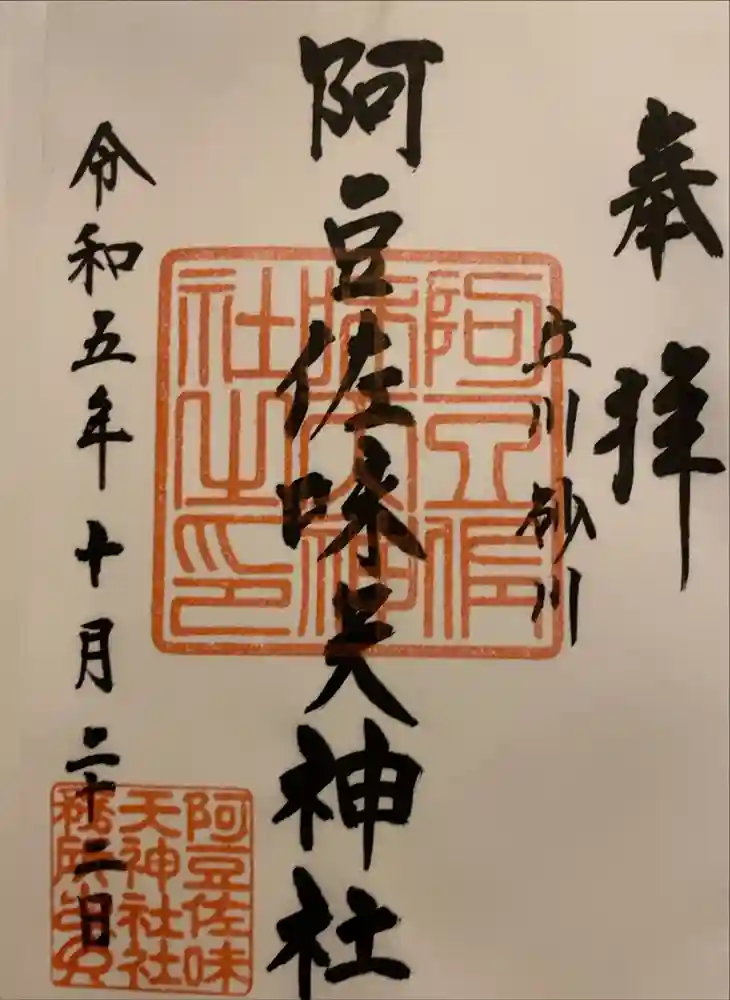 奉拝
立川砂川
阿豆佐味天神社
令和五年十月二十二日
阿豆佐
味天神
社之印
阿豆佐味
天神社社
務